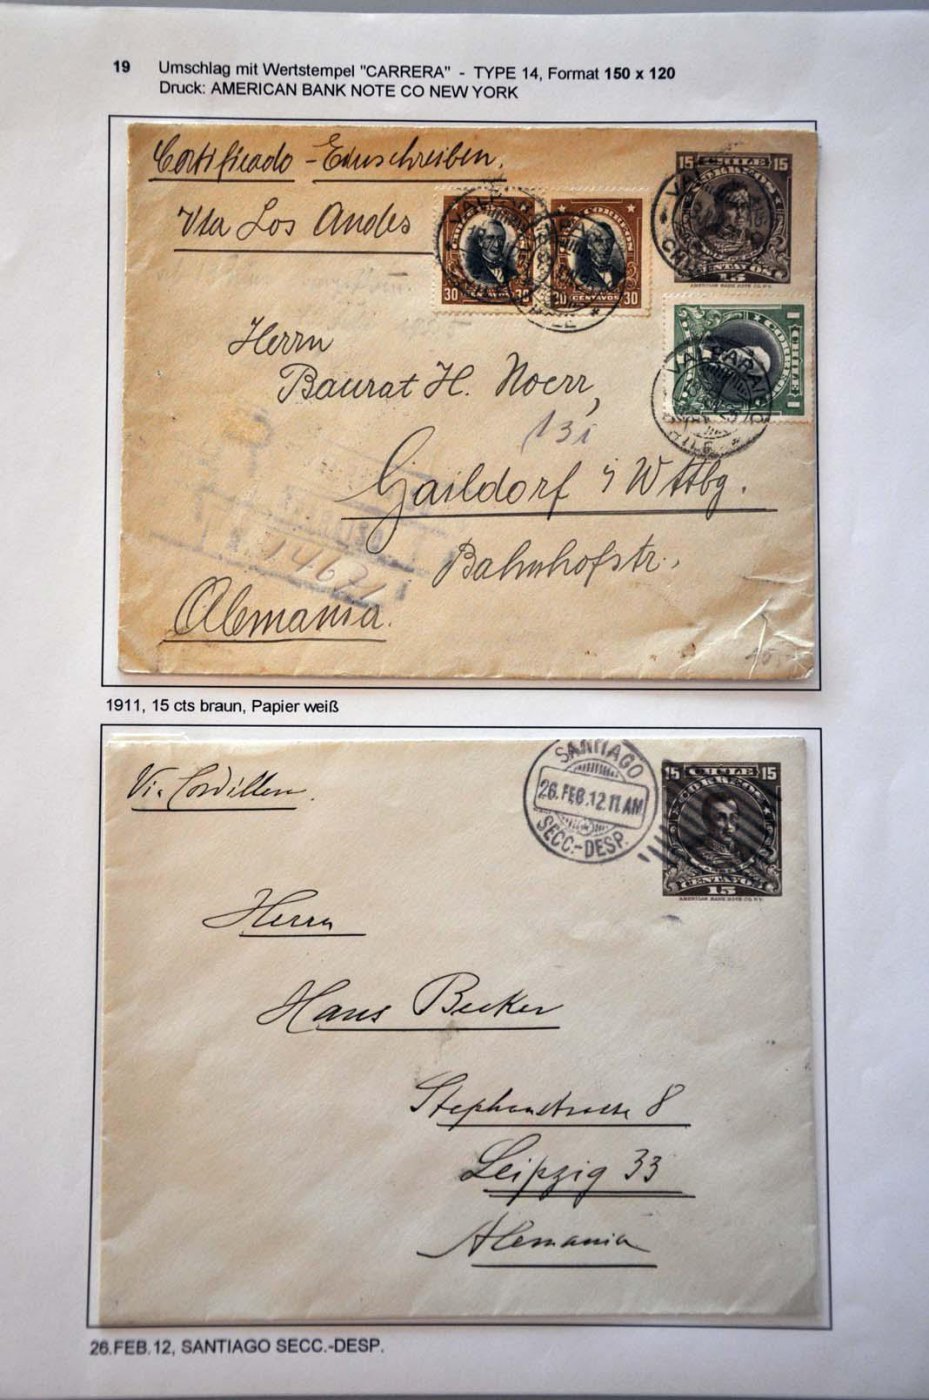 19 Umschlag mit Wertstempel "CARRERA" - TYPE 14, Format 150 x 120
Druck: AMERICAN BANK NOTE CO NEW YORK
Certificado - Einschreiben.
Via Los Andes
15 CHILE 15
CORREOS
CENTAVOS
15
AMERICAN BANK NOTE CO. N.Y.
30 CENTAVOS 30
30 CENTAVOS 30
CORREOS
CHILE
VALPARAISO
CHILE
Herrn
Baurat H. Noerr,
131
Gaildorf i/ Wttbg.
Bahnhofstr.
Alemania.
1911, 15 cts braun, Papier weiß
Via Cordillera.
SANTIAGO
26.FEB.12 11 AM
SECC.-DESP.
15 CHILE 15
CORREOS
CENTAVOS
15
AMERICAN BANK NOTE CO. N.Y.
Herrn
Hans Becker
Stephanstrasse 8
Leipzig 33
Alemania
26.FEB.12, SANTIAGO SECC.-DESP.